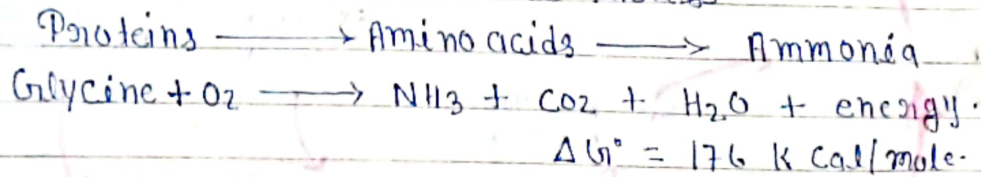 Proteins ⟶ Amino acids ⟶ Ammonia
Glycine + O2 ⟶ NH3 + CO2 + H2O + energy.
ΔG° = 176 K Cal/mole.